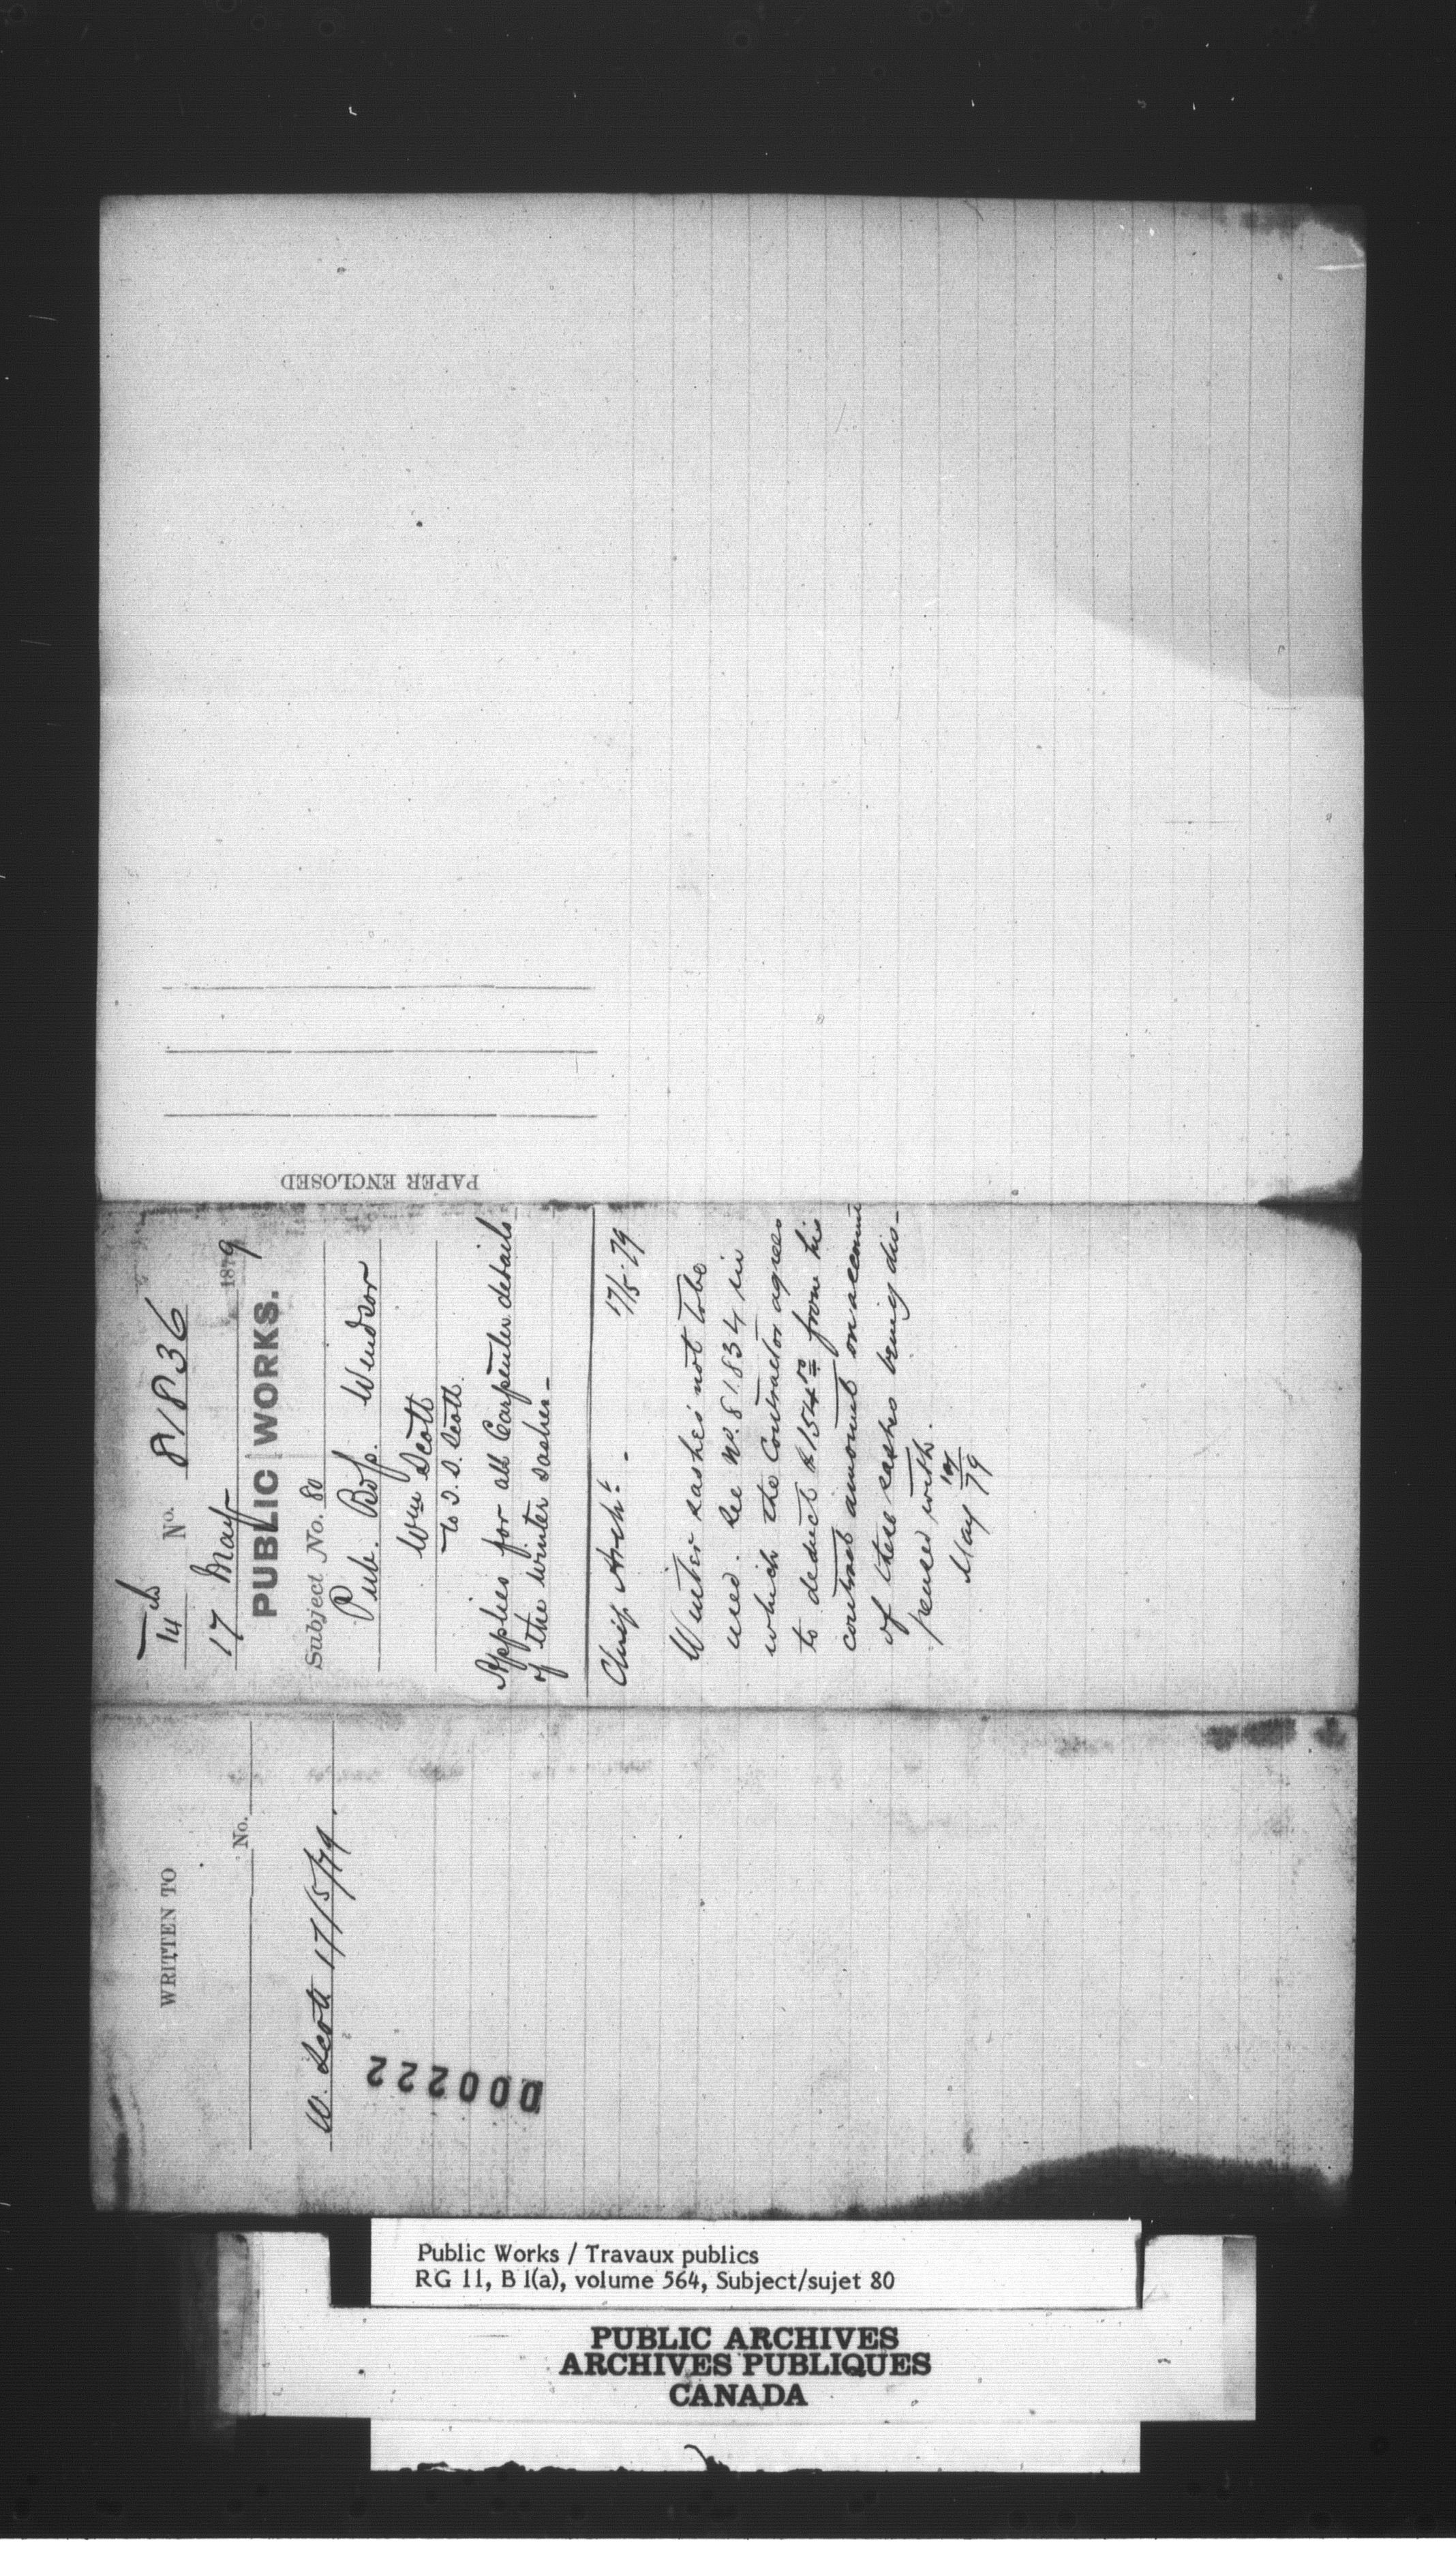 PAPER ENCLOSED
14 No. 81836
17 May 1879
PUBLIC WORKS.
Subject No. 80
Pub. Bdgs. Windsor
Wm Scott
to T. S. Scott
Applies for all Carpenter details
of the winter sashes_
Chief Archt. 17/5.79
Winter sashes not to be
used. See No. 81834 in
which the Contractor agrees
to deduct $154 from his
contract amount on account
of these sashes being dis-
pensed with.
May 79
WRITTEN TO
No.
W. Scott 17/5/79.
000222
Public Works / Travaux publics
RG 11, B 1(a), volume 564, Subject/sujet 80
PUBLIC ARCHIVES
ARCHIVES PUBLIQUES
CANADA